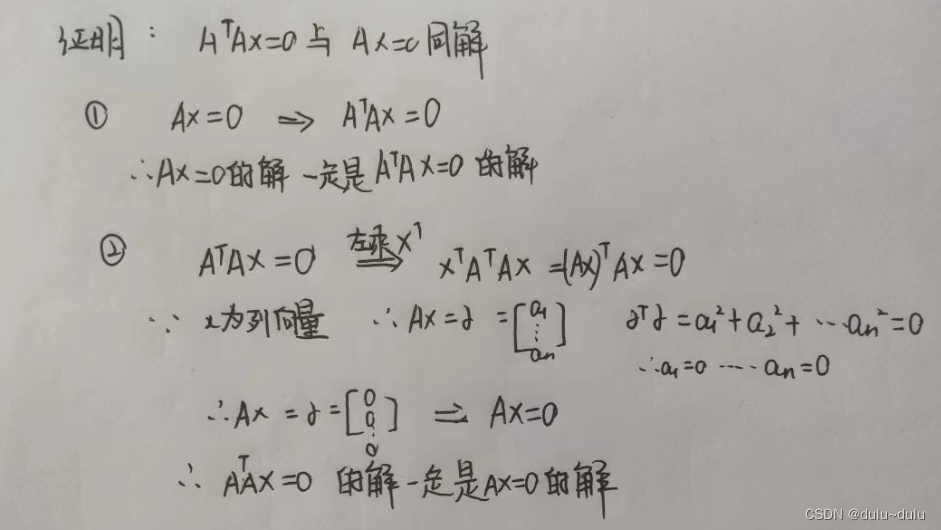 证明: AᵀAx=0 与 Ax=0 同解
① Ax=0 ⇒ AᵀAx=0
∴Ax=0的解一定是AᵀAx=0 的解
② AᵀAx=0 左乘xᵀ ⇒ xᵀAᵀAx =(Ax)ᵀAx=0
∵ x为列向量 ∴ Ax=∂ =[a₁ ⋮ aₙ] ∂ᵀ∂ = a₁²+a₂²+ ⋯aₙ²=0
∴a₁=0 ⋯⋯ aₙ=0
∴Ax = ∂ =[0 0 ⋮ 0] ⇒ Ax=0
∴ AᵀAx=0 的解一定是Ax=0的解
CSDN @dulu~dulu